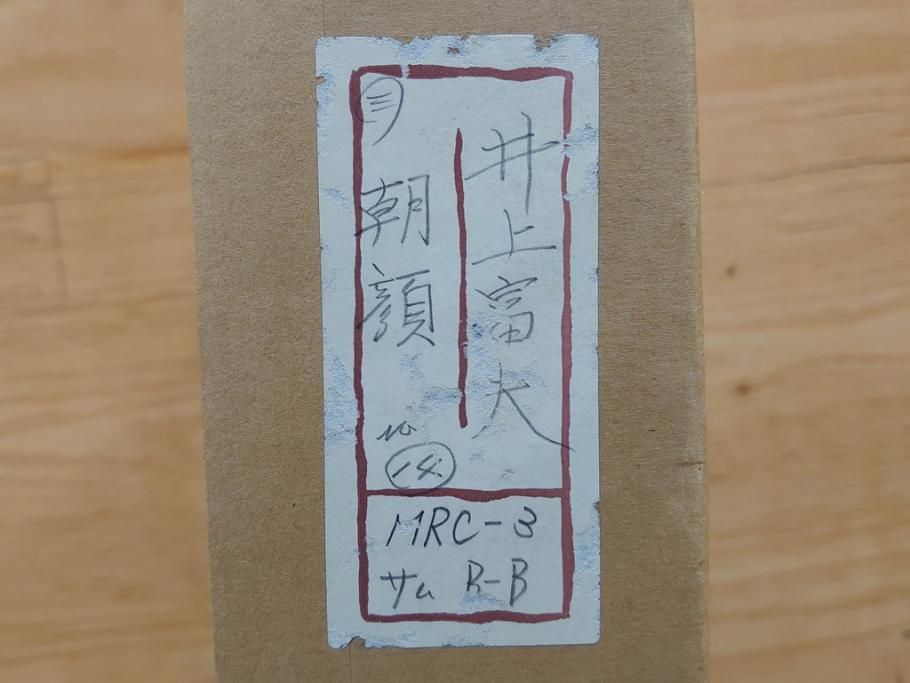 井上富夫
㊂
朝顔
No
14
MRC-3
サム B-B